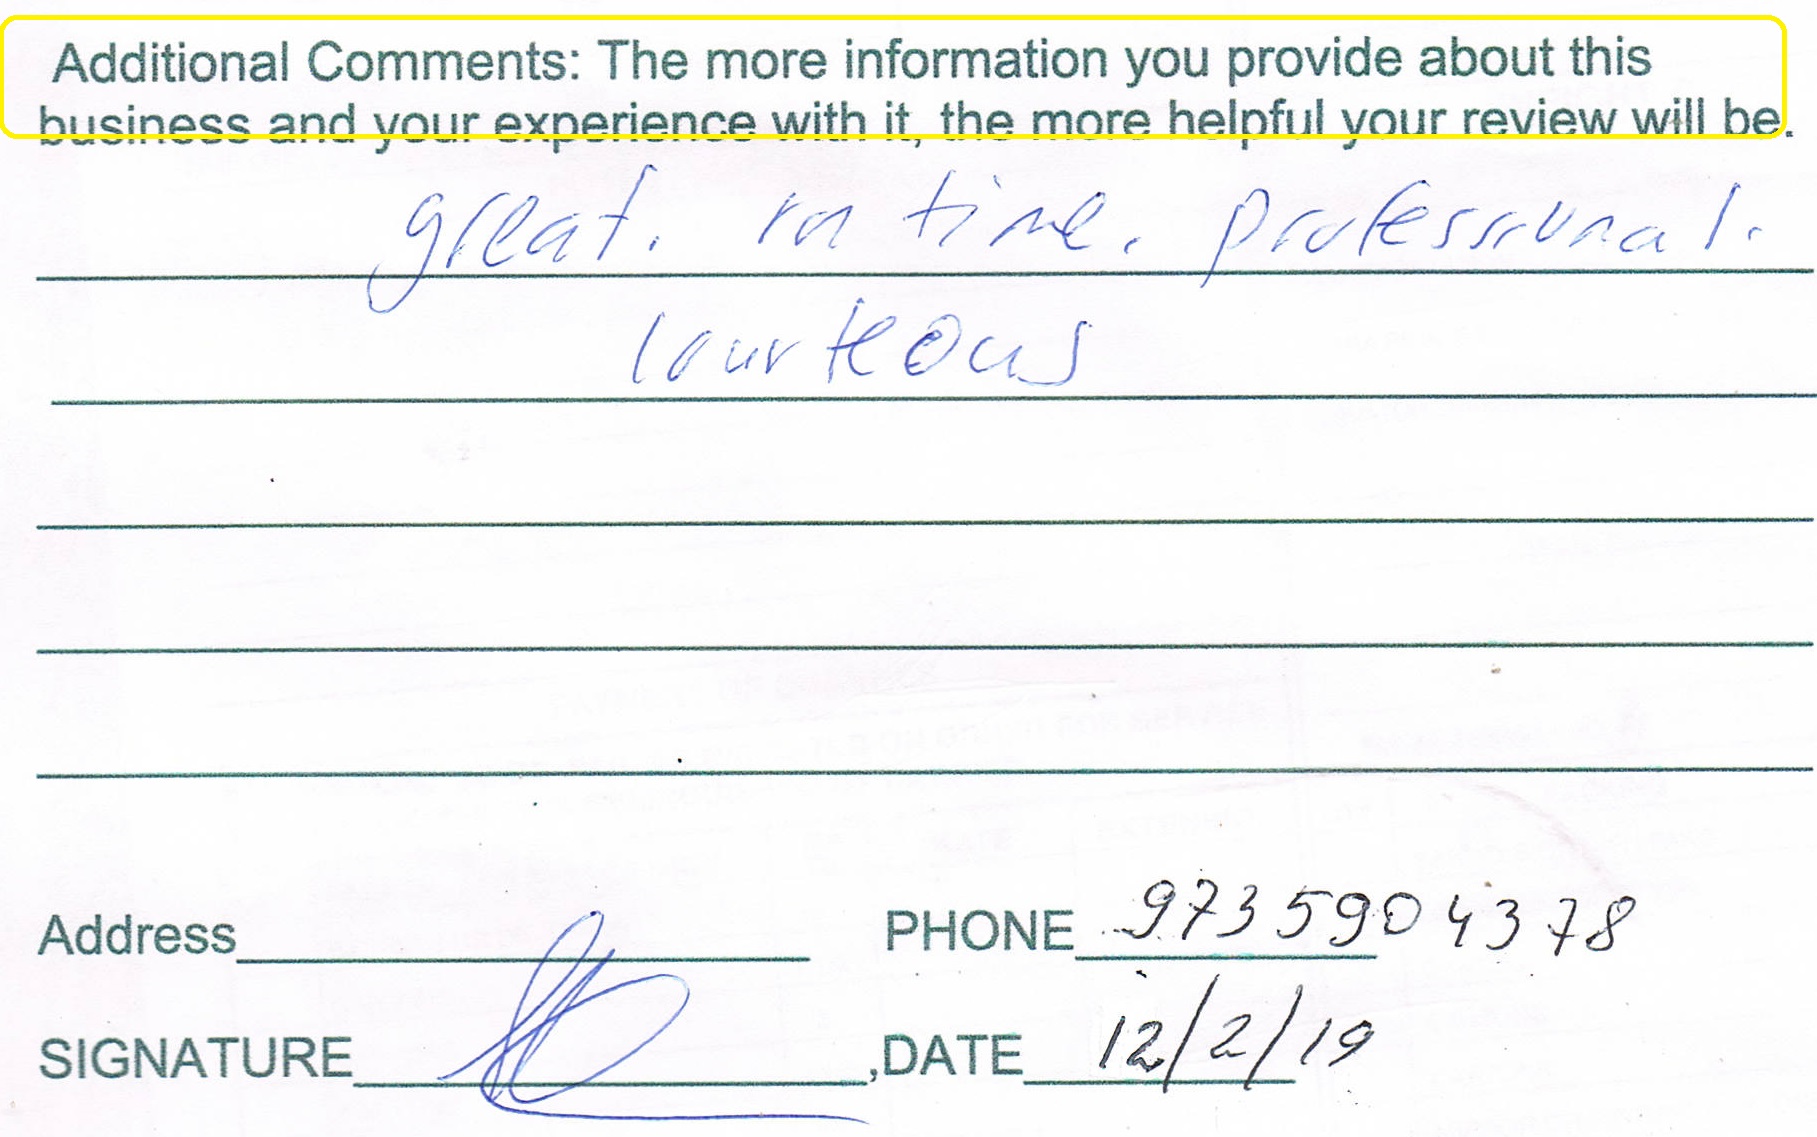 Additional Comments: The more information you provide about this
business and your experience with it, the more helpful your review will be.
great. on time. professional.
courteous
Address
PHONE 9735904378
SIGNATURE
,DATE 12/2/19